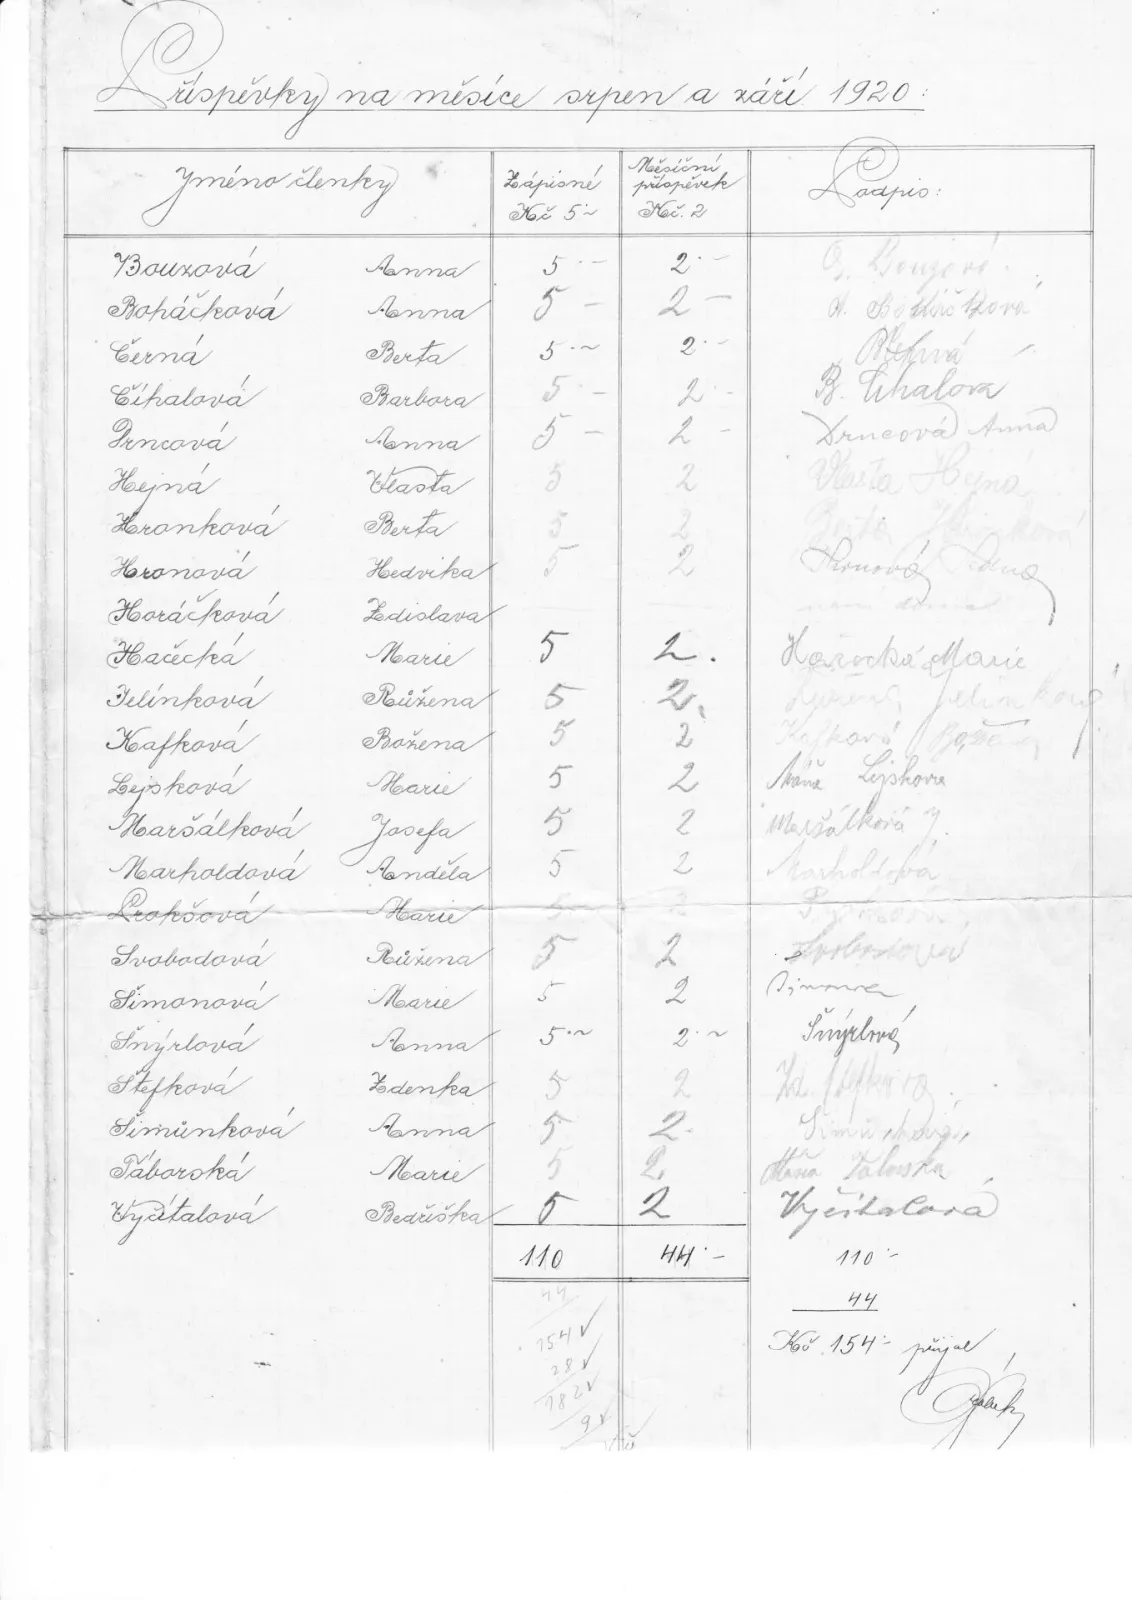 Příspěvky na měsíce srpen a září 1920:
Jméno členky Zápisné Kč 5·~ Měsíční příspěvek Kč. 2 Podpis:
Bouzová Anna 5·- 2·- A. Bouzová
Boháčková Anna 5 - 2 - A. Boháčková
Černá Berta 5·~ 2·- BČerná
Číhalová Barbora 5·- 2·- B. Číhalova
Drncová Anna 5 - 2 - Drncová Anna
Hejná Vlasta 5 2 Vlasta Hejná
Hronková Berta 5 2 Berta Hronková
Hronová Hedvika 5 2 Hronová
Horáčková Zdislava
Hačecká Marie 5 2. Marie
Jelínková Růžena 5 2. Růžena Jelínková
Kafková Božena 5 2 Kafková Božena
Lejsková Marie 5 2 Máňa Lejskova
Maršálková Josefa 5 2 Maršálková J.
Marholdová Anděla 5 2 Marholdová
Prokšová Marie 5 2
Svobodová Růžena 5 2 Svobodová
Šimonová Marie 5 2
Šnýrlová Anna 5·~ 2·~ Šnýrlová
Štefková Zdenka 5 2 Zd. Štefková
Šimůnková Anna 5 2.
Táborská Marie 5 2
Vyčítalová Bedřiška 5 2 Vyčítalová
110 44·- 110·-
44 44
154 Kč 154·- přijal
28
182
9